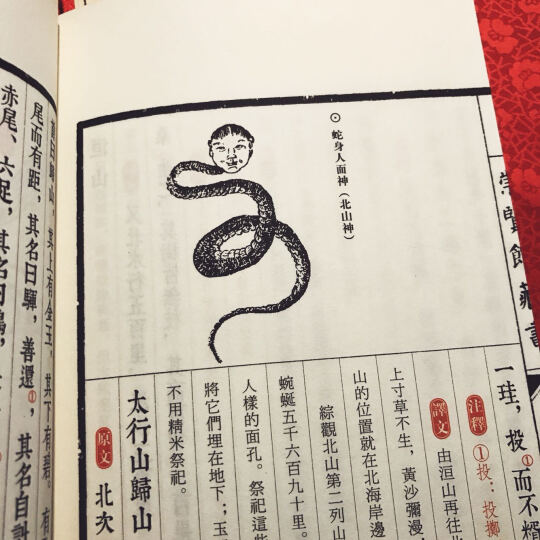 崇賢館藏書
⊙ 蛇身人面神（北山神）
一珪，投①而不糈
注釋 ①投：投擲
譯文 由洹山再往北
上寸草不生，黃沙彌漫，
山的位置就在北海岸邊
綜觀北山第二列山
蜿蜒五千六百九十里。
人樣的面孔。祭祀這些
將它們埋在地下；玉
不用精米祭祀。
太行山歸山
原文 北次
曰歸山，其上有金玉，其下有碧。有
尾而有距，其名曰驒，善還①，其名自訆
赤尾、六足，其名曰